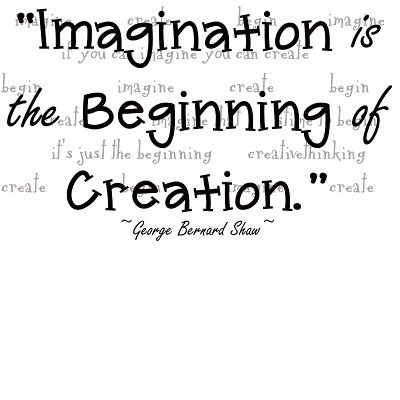 imagine create begin imagine
"Imagination is
if you can imagine you can create
begin imagine create begin
the Beginning of
it's just the beginning creativethinking
Creation."
create begin imagine create
~George Bernard Shaw~